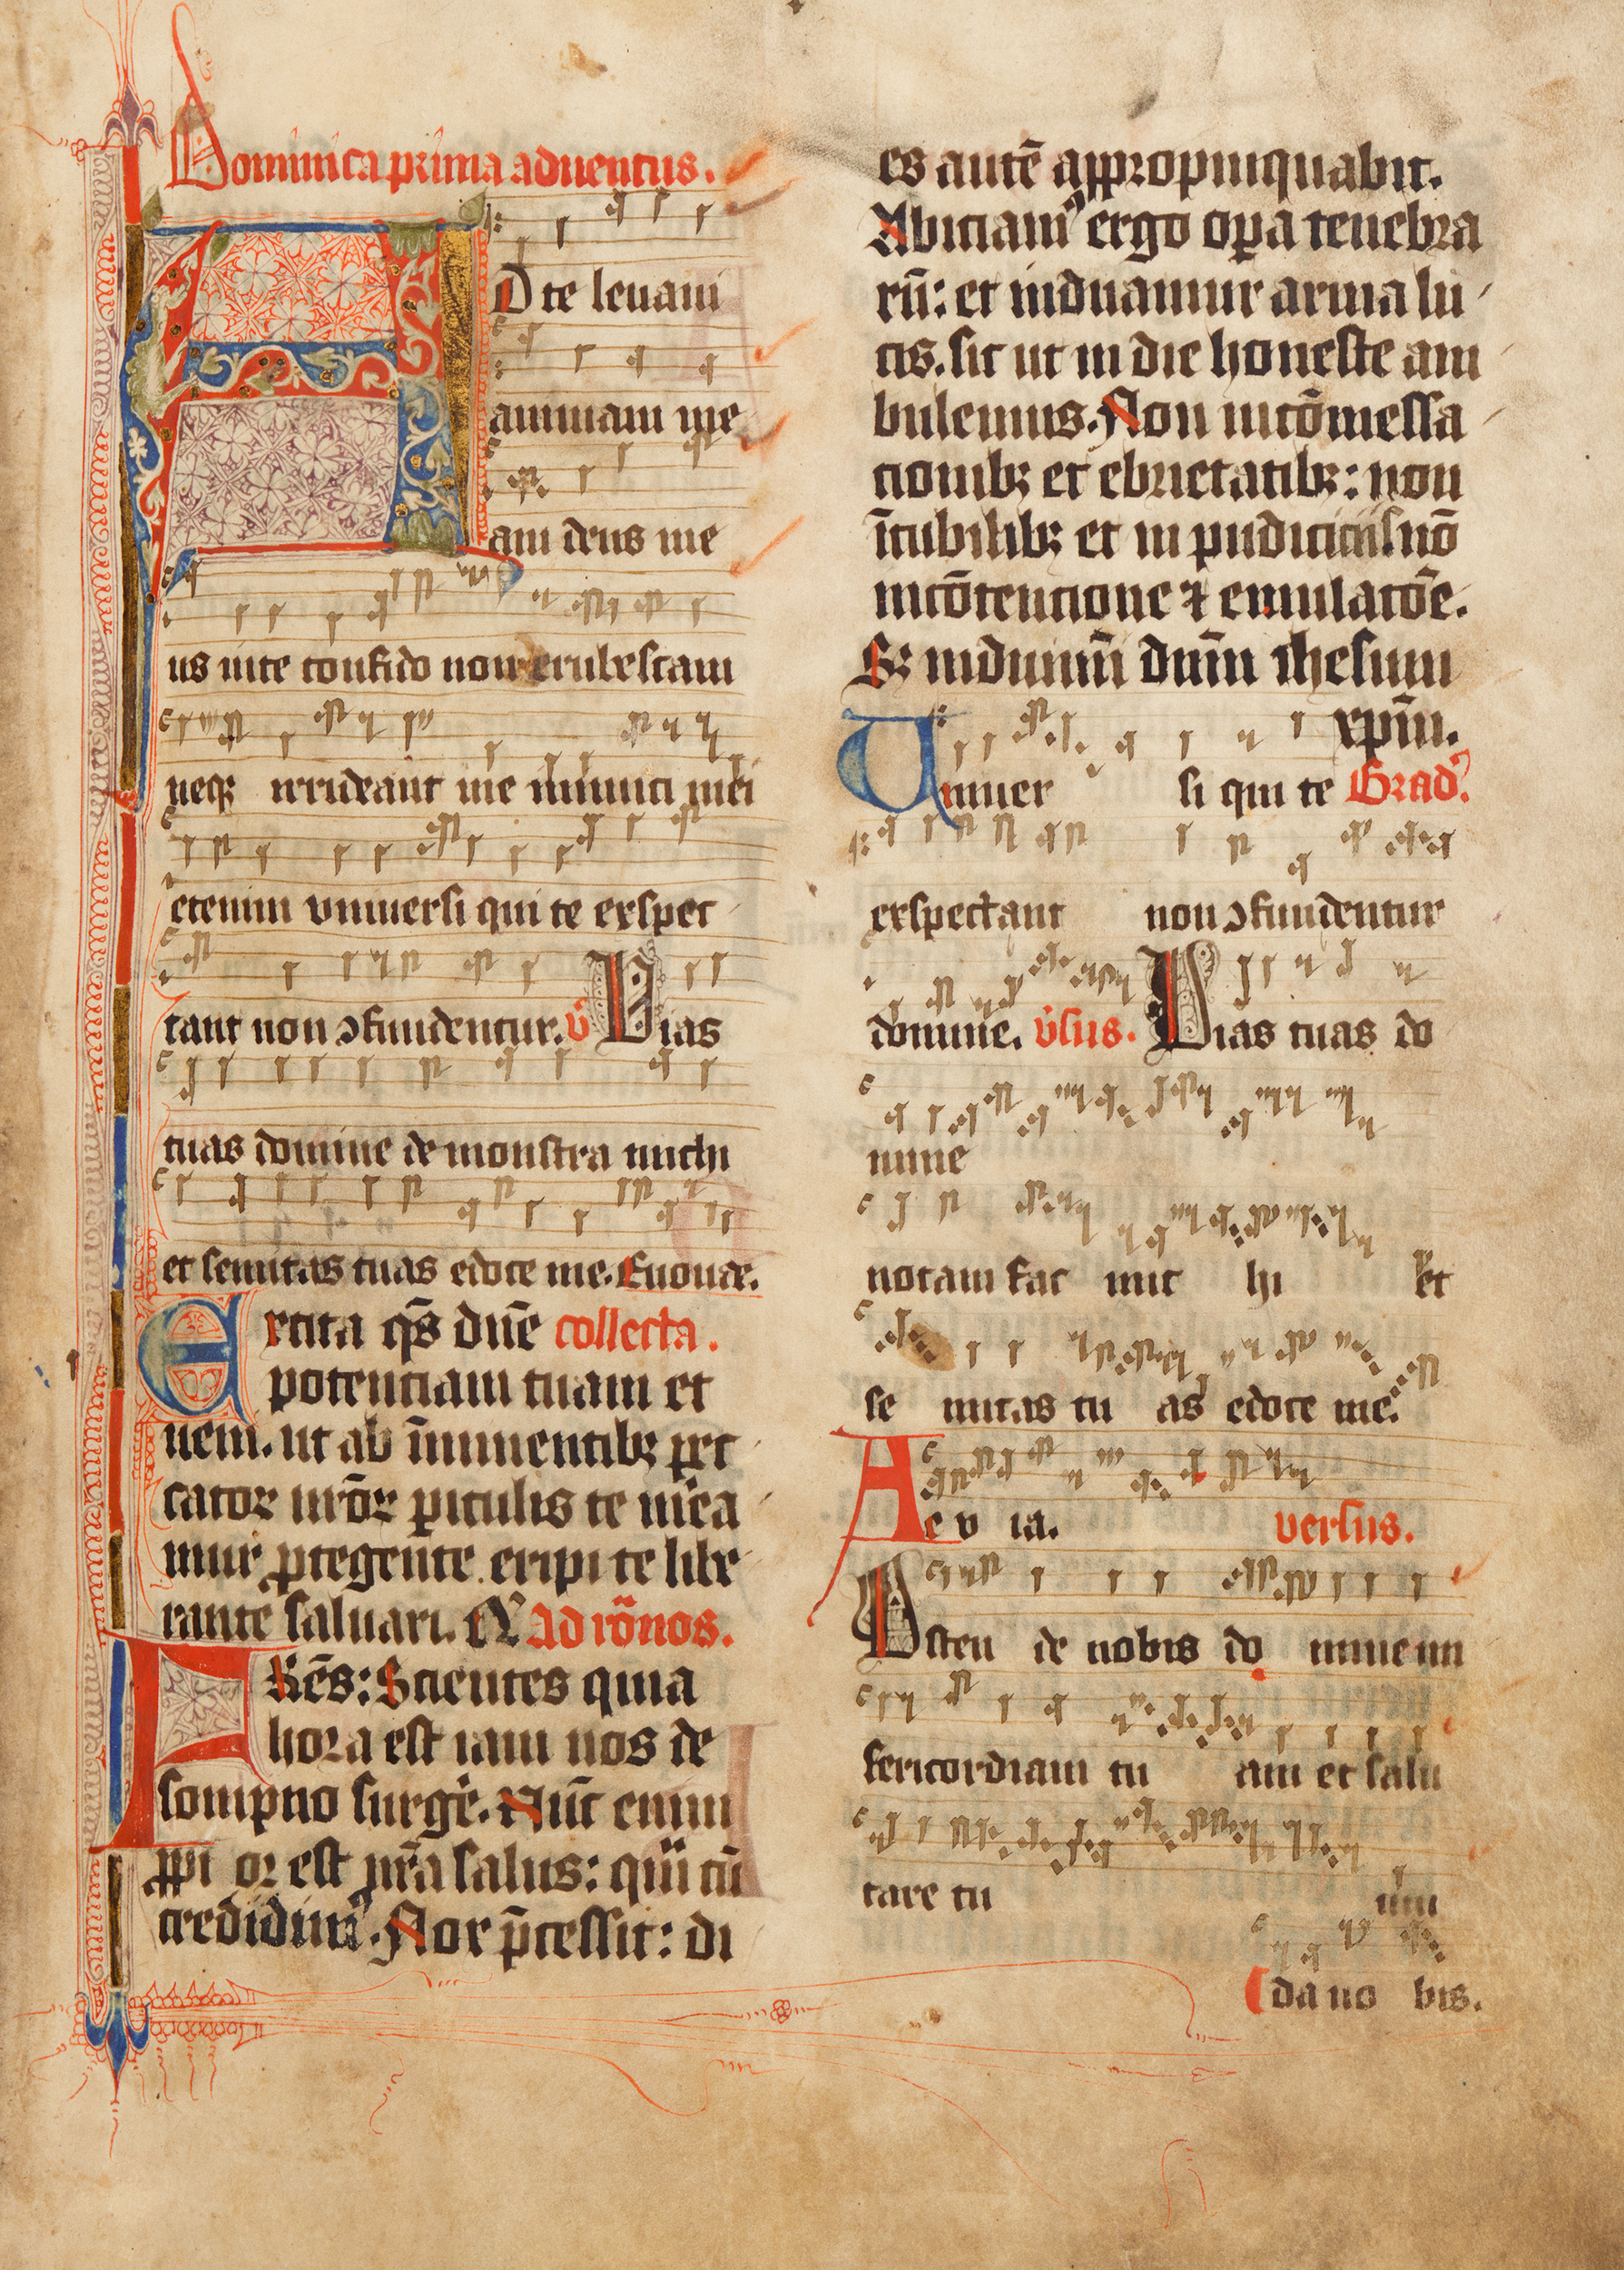 Dominica prima aduentus.
AD te leuaui
animam me
am deus me
us inte confido non erubescam
neqꝫ irrideant me inimici mei
etenim vniuersi qui te exspec
tant non ↄfundentur. v̾ Vias
tuas domine demonstra michi
et semitas tuas edoce me. Euouae.
Excita qs̄ dn̄e collecta.
potenciam tuam et
veni. ut ab īminentibꝫ pec
catoꝝ nrōꝝ periculis te mĕa
mur ꝓtegente eripi te libe
rante saluari. Ad rōnos.
FRēs: Scientes quia
hora est iam nos de
sompno surgĕ. Nūc enim
ꝓpi or est nr̄a salus: qui cū
credidim᷒. Nox p̄cessit: di
es autē appropinquabit.
Abiciam᷒ ergo oꝑa tenebra
rū: et induamur arma lu
cis. sic ut in die honeste am
bulemus. Non incōmessa
cionibꝫ et ebrietatibꝫ: non
ī cubilibꝫ et in pudiciciis nō
incōtencione ⁊ emulacōe.
Sꝫ induimī dn̄m ihesum
xpm̄.
Uniuer si qui te Grad᷒.
exspectant non ↄfundentur
domine. v̾sus. Vias tuas do
mine
notam fac mic hi et
se mitas tu as edoce me.
Ae v ia. versus.
Osten de nobis do mine mi
sericordiam tu am et salu
tare tu um
da no bis.